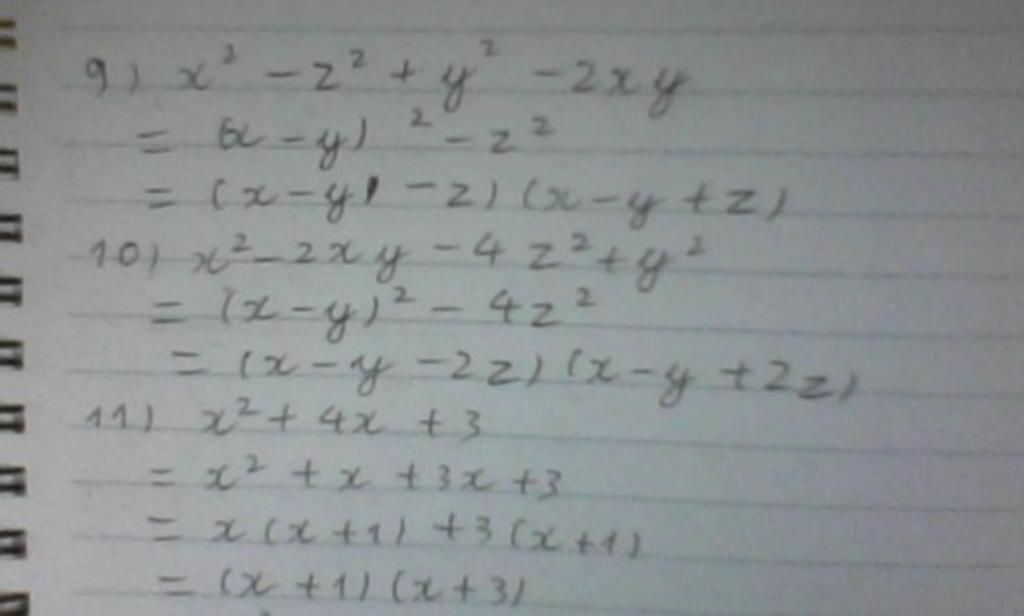 9) x² - z² + y² - 2xy
= (x - y)² - z²
= (x - y - z) (x - y + z)
10) x² - 2xy - 4z² + y²
= (x - y)² - 4z²
= (x - y - 2z) (x - y + 2z)
11) x² + 4x + 3
= x² + x + 3x + 3
= x (x + 1) + 3 (x + 1)
= (x + 1) (x + 3)